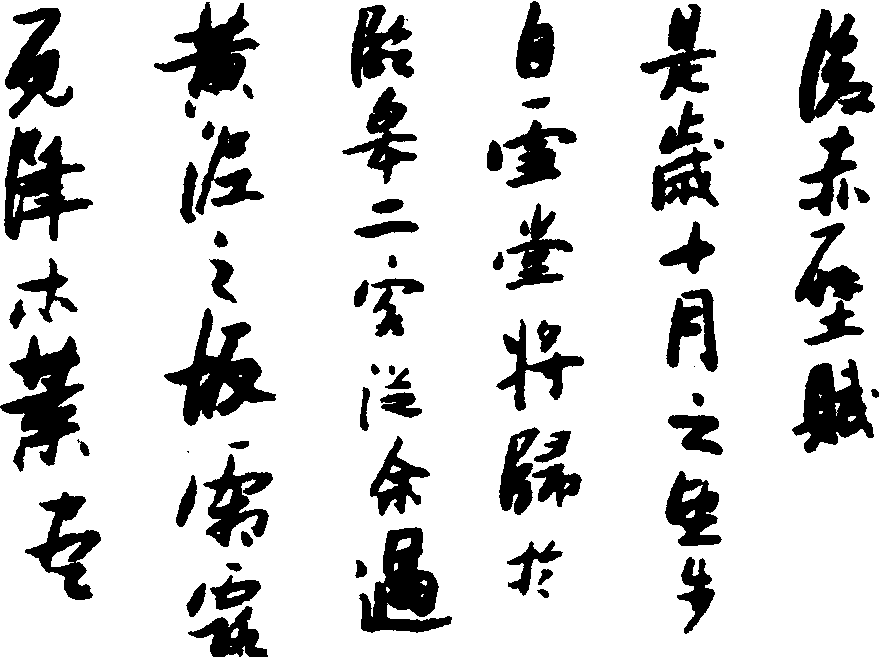 後赤壁賦
是歲十月之望步
自雪堂將歸於
臨皋二客從余過
黃泥之坂霜露
既降木葉盡